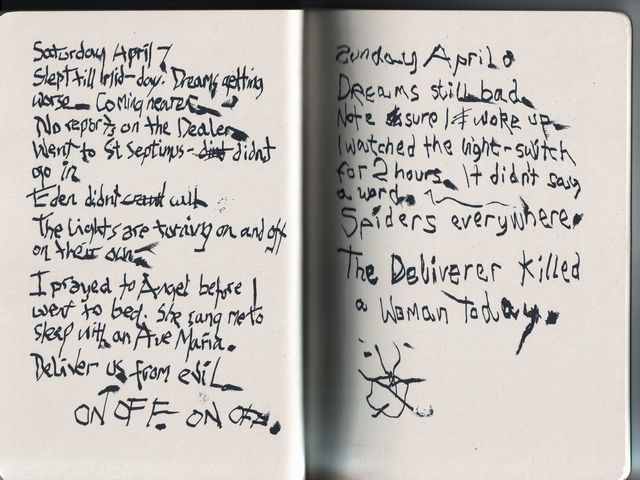 Saturday April 7
Slept till mid-day. Dreams getting
worse. Coming nearer.
No reports on the Dealer.
Went to St Septimus - didnt didnt
go in.
Eden didnt call
The Lights are turning on and off
on their own
I prayed to Angel before I
went to bed. She sang me to
sleep with an Ave Maria.
Deliver us from eviL
ON OFF ON OFF.
Sunday April 8
Dreams still bad.
Not sure I woke up.
I watched the Light-switch
for 2 hours. It didn't say
a word.
Spiders everywhere.
The Deliverer Killed
a Woman Today.